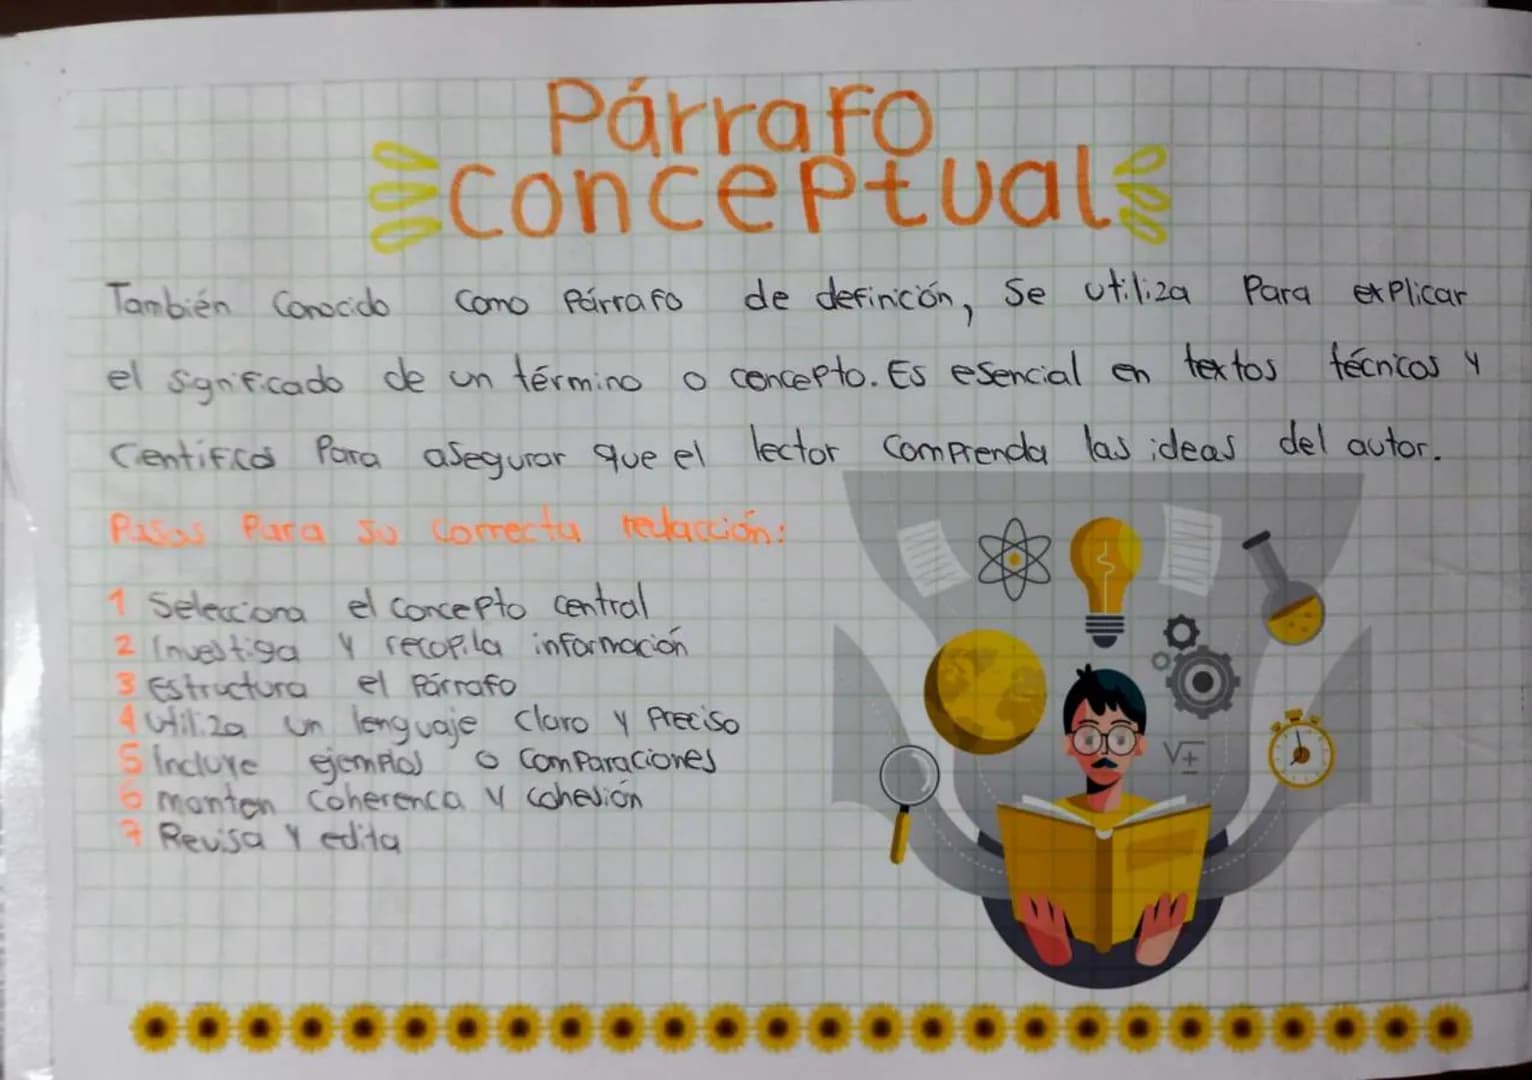 Párrafo
conceptual
También Conocido como Párrafo de definición, se utiliza Para explicar
el significado de un término o concepto. Es esencial en textos técnicos y
Científicos Para asegurar que el lector comprenda las ideas del autor.
Pasos Para su correcta redacción:
1 Selecciona el concepto central
2 Investiga y recopila información
3 Estructura el Párrafo
4 Utiliza un lenguaje claro y Preciso
5 Incluye ejemplos o comparaciones
6 manten coherenca y cohesión
7 Revisa y edita